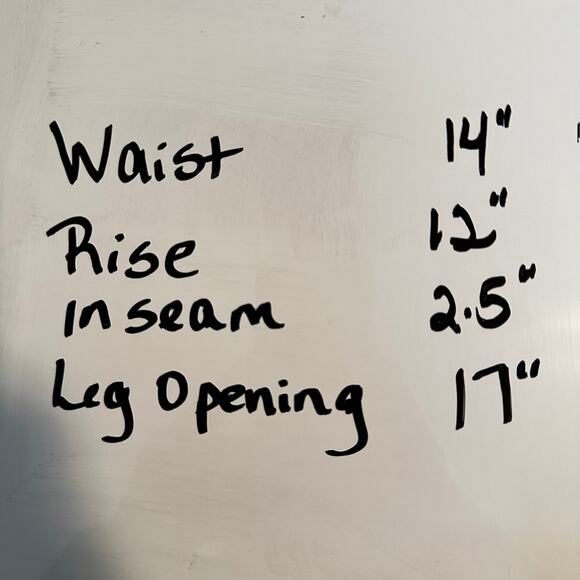 Waist 14"
Rise 12"
inseam 2.5"
Leg Opening 17"